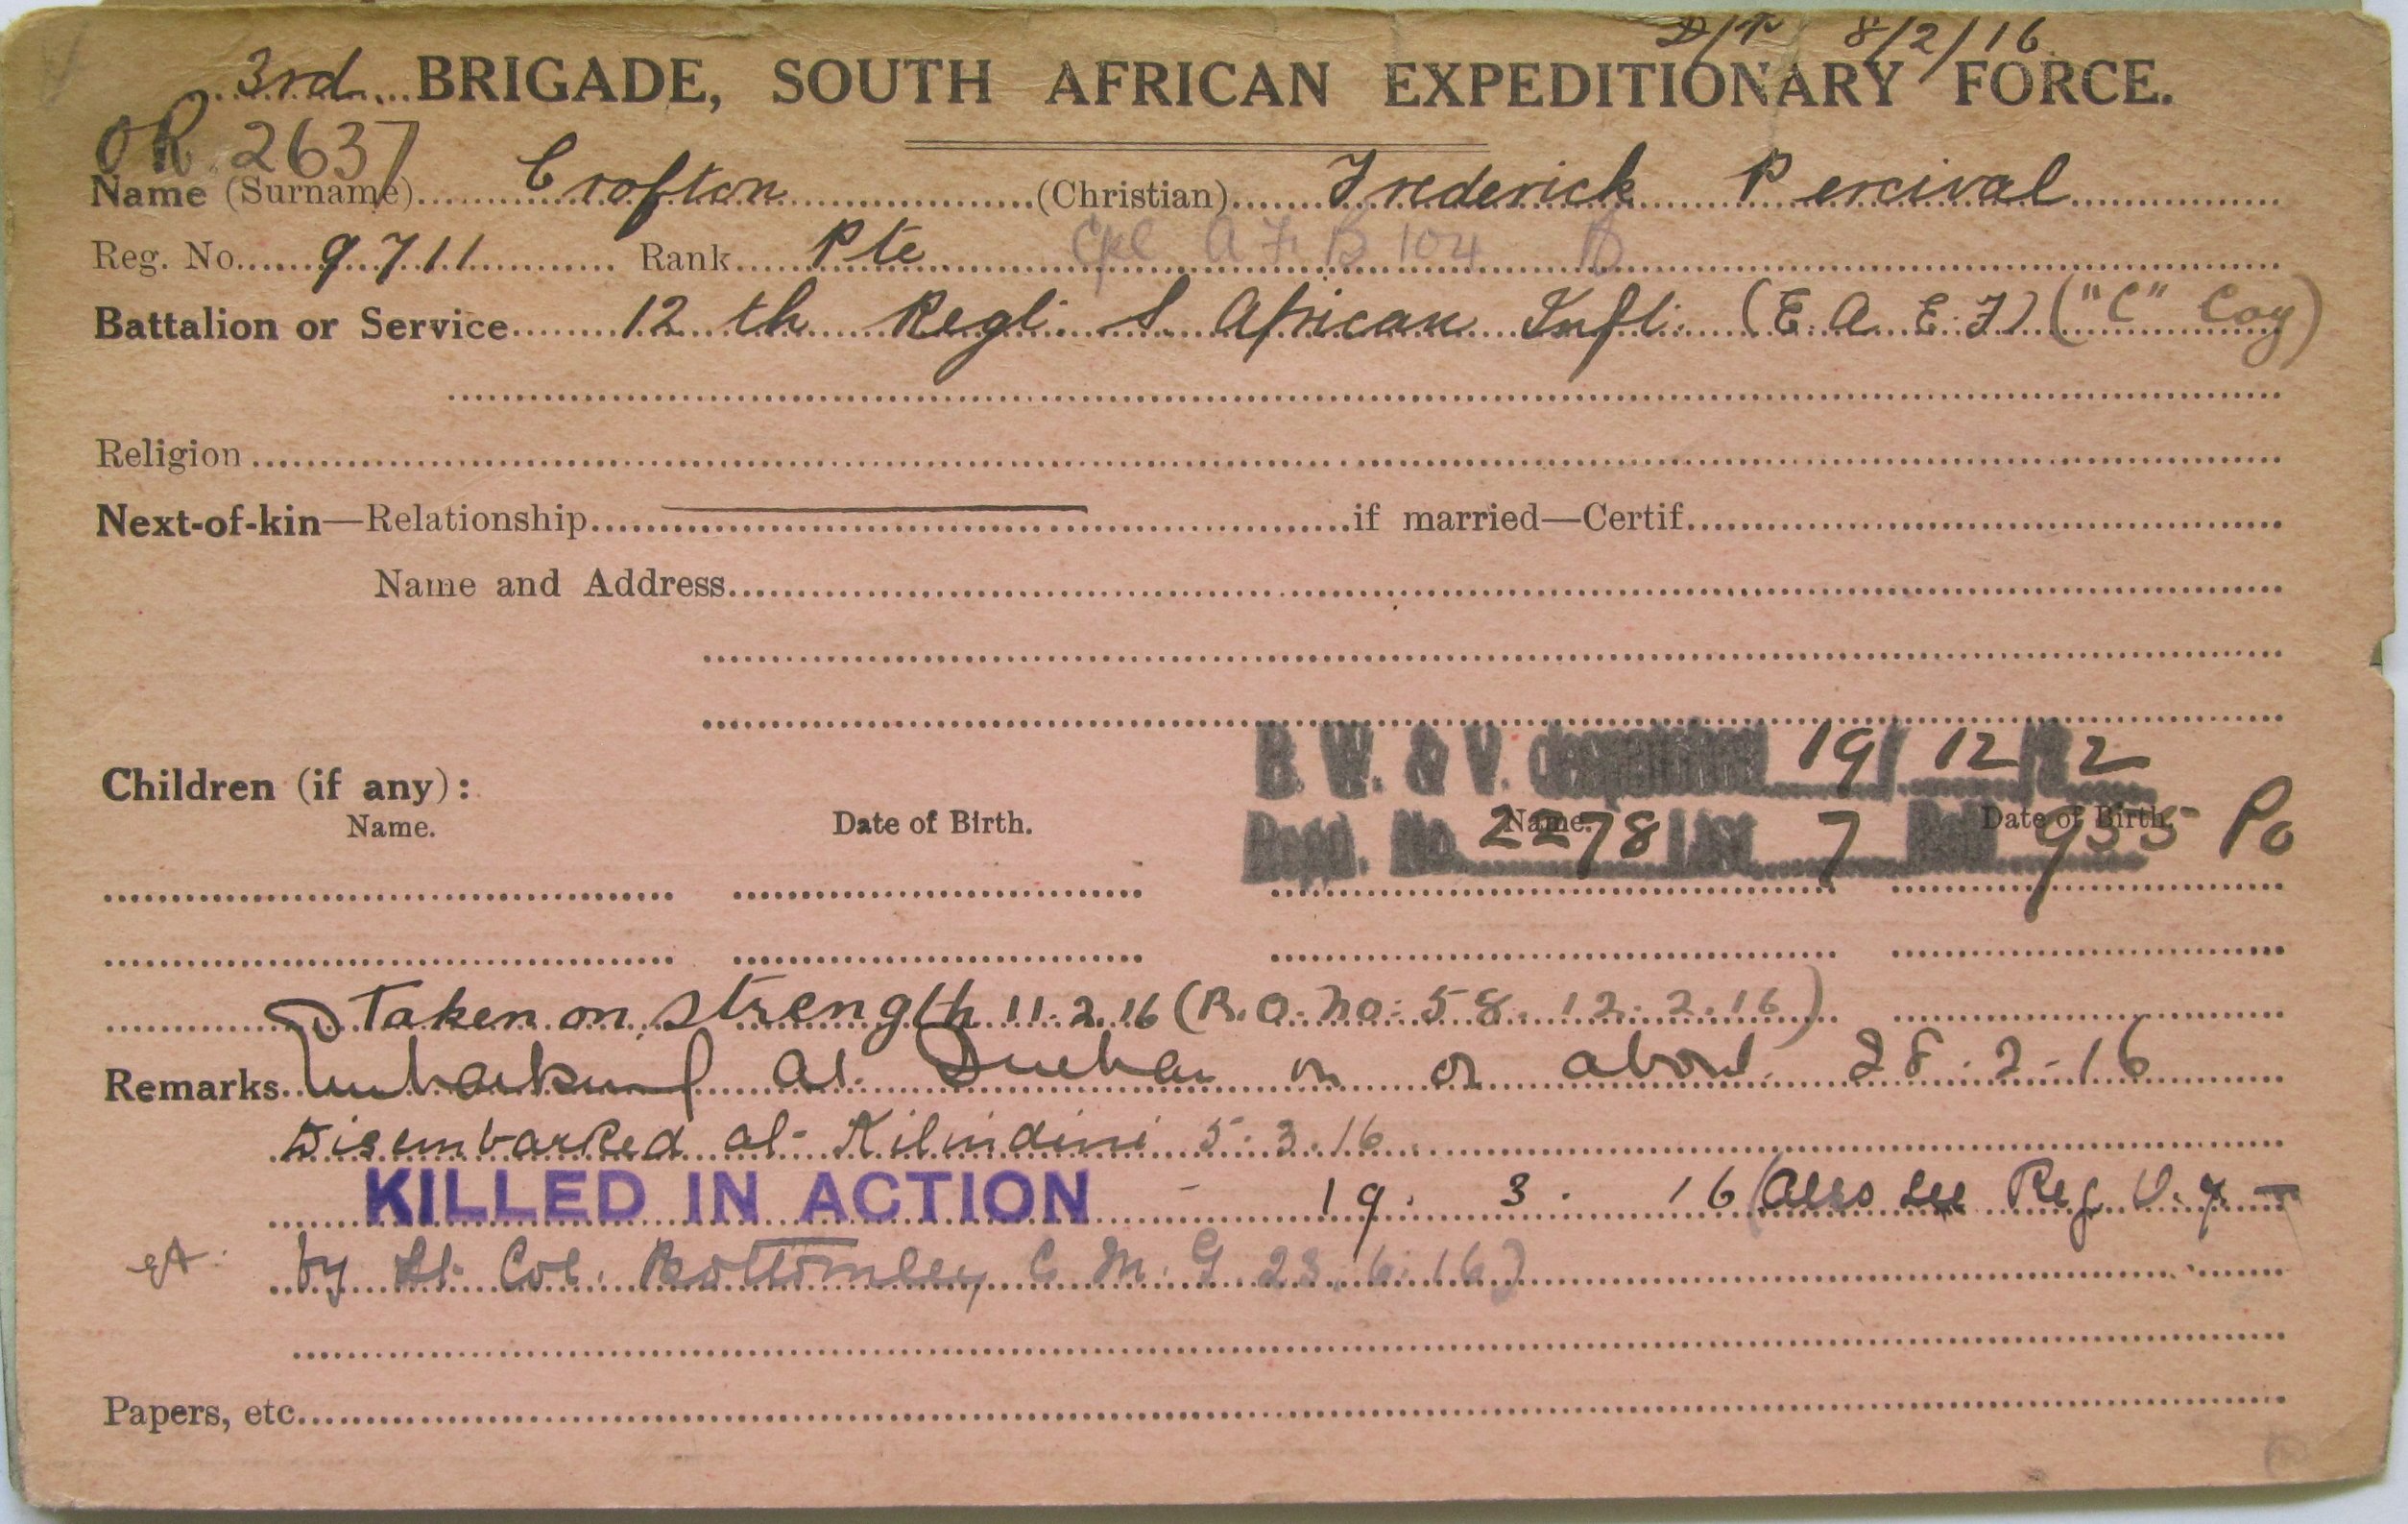 D/P 8/2/16
3rd BRIGADE, SOUTH AFRICAN EXPEDITIONARY FORCE.
OR 2637
Name (Surname) Crofton (Christian) Frederick Percival
Reg. No. 9711 Rank Pte Cpl A F B 104
Battalion or Service 12th Regt. S African Inft. (E. A. E. F) ("C" Coy)
Religion
Next-of-kin—Relationship if married—Certif.
Name and Address
B. W. & V. despatched 19/12/22
Children (if any):
Name. Date of Birth. Name. Date of Birth.
Regd. No. 2278 List 7 935 Po
Taken on strength 11.2.16 (R.O. No. 58. 12.2.16)
Remarks Embarking at Durban on or about 28.2.16
Disembarked at Kilindini 5.3.16.
KILLED IN ACTION - 19. 3. 16 (Also see Reg V.
by Lt Col. Bottomley C M. G 23.6.16)
Papers, etc.